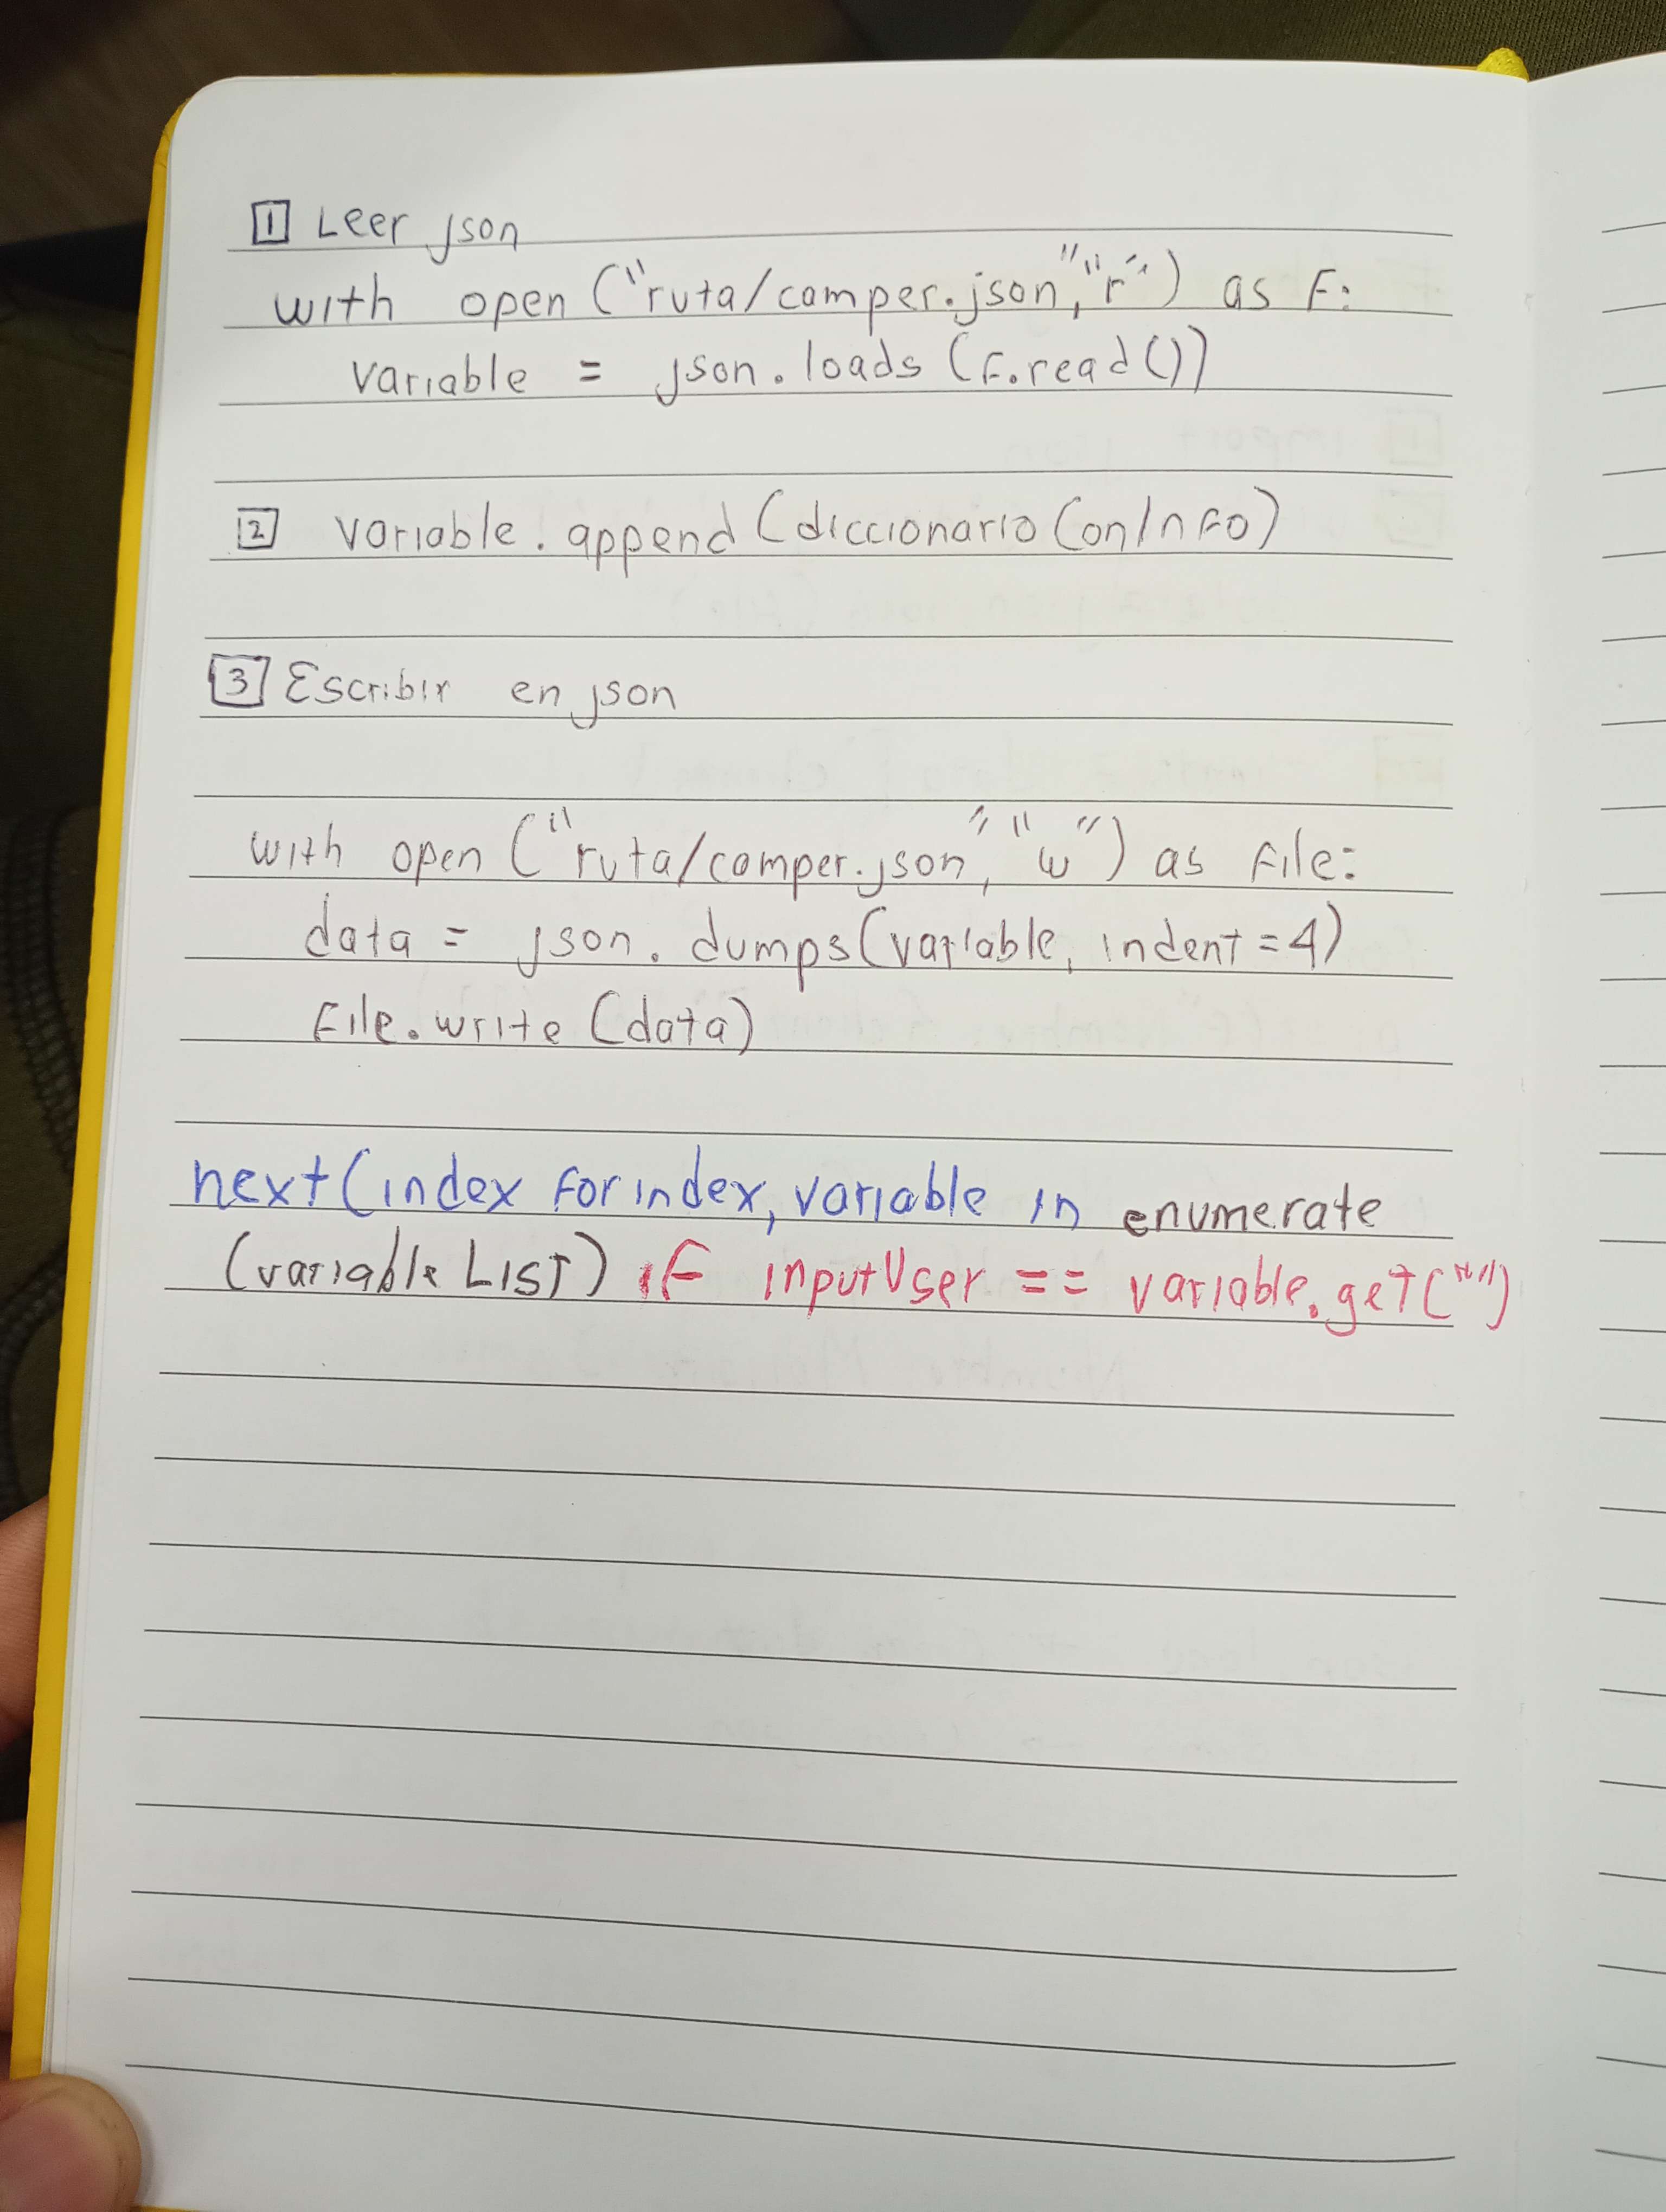 1 Leer json
with open ("ruta/camper.json","r") as F:
variable = json.loads (F.read())
2 variable.append (diccionarioConInFo)
3 Escribir en json
with open ("ruta/camper.json", "w") as File:
data = json.dumps(variable, indent=4)
File.write (data)
next(index For index, variable in enumerate
(variable List) iF inputUser == variable.get("")